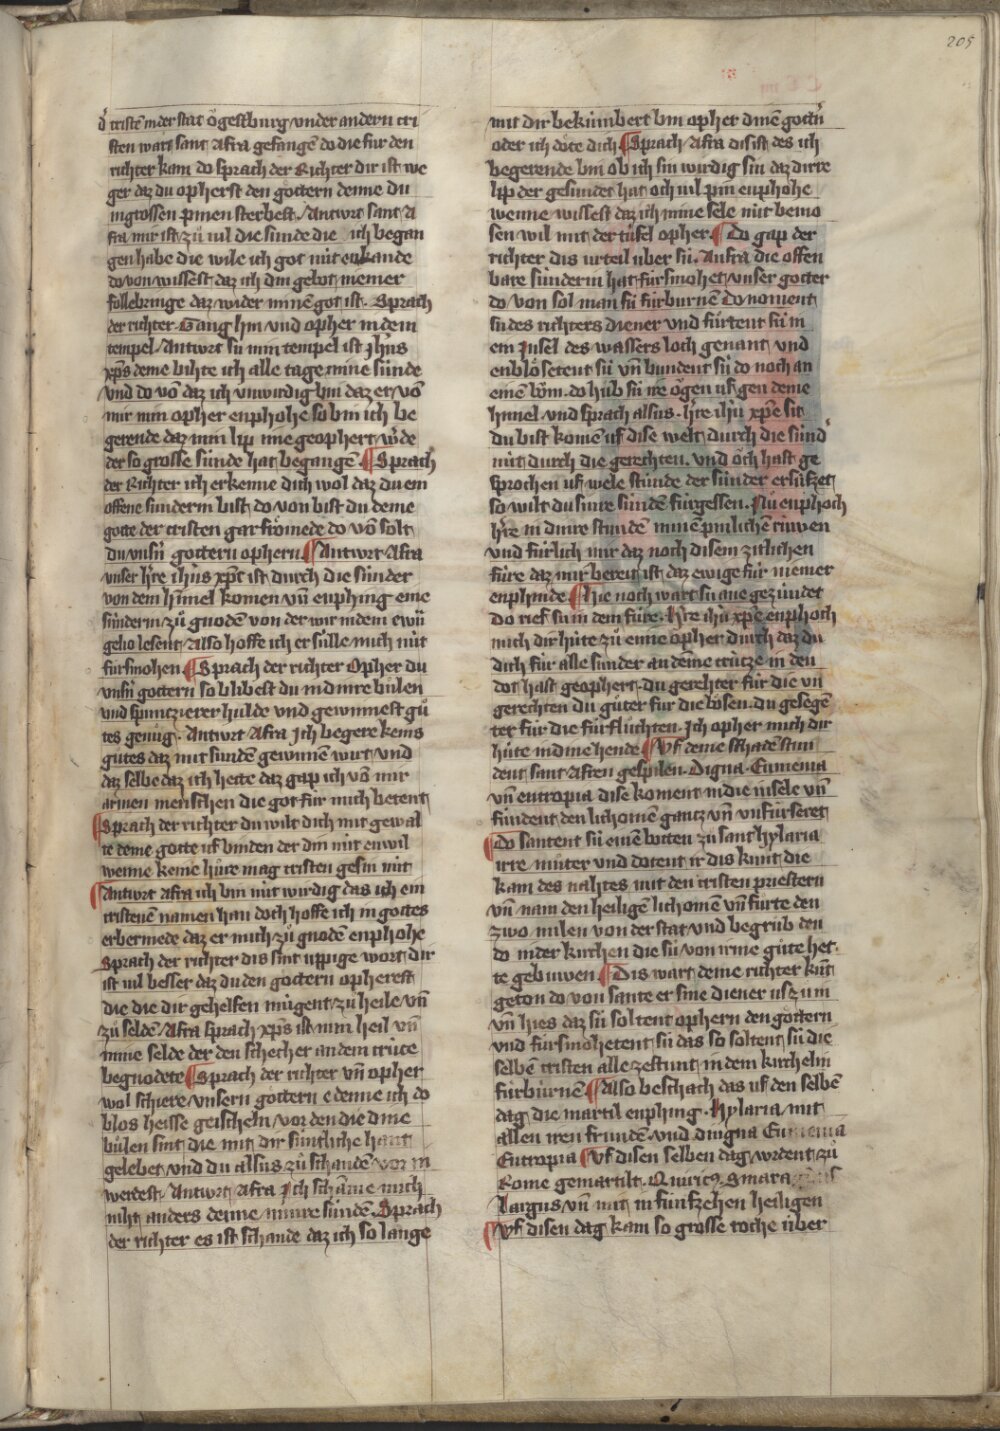 205
d᷑ cristē in der stat ȯgestburg vnder andern cri
sten wart sant Afra gefangē do die fur den
richter kam do sprach der Richter dir ist we
ger daz du opherst den gottern denne du
in grossen pinen sterbest Antwrt sant A
fra mir ist zů vil die sunde die ich began
gen habe die wile ich got nüt erkande
do von wissest daz ich din gebot niemer
follebringe daz wider minē got ist Sprach
der richter Gang hin vnd opher in dem
tempel Antwrt sü min tempel ist jhūs
xp̄s deme bihte ich alle tage mine sünde
vnd do vō daz ich vnwirdig bin daz er vō
mir min opher enphohe so bin ich be
gerende daz min lip ime geophert w᷑de
der so grosse sünde hat begangē ¶ Sprach
der Richter ich erkenne dich wol daz du ein
offene sünderin bist do von bist du deme
gotte der cristen gar frȯmede do vō solt
du vnsn᷑ gottern ophern ¶ Antwrt Afra
vnser h᷑re ihūs xp̄c ist durch die sünder
von dem h̄mel komen vn̄ enphing eine
sünderin zů gnoden von der wir in dem ewū
gelio lesent Also hoffe ich er sülle mich nüt
fürsmohen ¶ Sprach der richter Opher du
vnsn᷑ gottern so blibest du in dinre bůlen
vnd spuntzierer hulde vnd gewinnest gů
tes genůg Antwrt Afra Ich begere keins
gutes daz mit sundē gewinnē wirt vnd
daz selbe daz ich hette daz gap ich vō mir
armen menschen die got für mich betent
¶ Sprach der richter du wilt dich mit gewal
te deme gotte uf binden der din nit enwil
wenne keine hůre mag cristen gesin nüt
¶ Antwrt afra ich bin nüt wirdig das ich ein
cristenē namen han doch hoffe ich in gottes
erbermede daz er mich zů gnoden enphohe
Sprach der richter dis sint üppige wort dir
ist vil besser daz du den gottern opherest
die die dir gehelfen mügent zů heile vn̄
zů seldē Afra sprach xp̄s ist min heil vn̄
mine selde der den schecher an dem crüce
begnodete ¶ Sprach der richter vn̄ opher
wol schiere vnsern gottern e denne ich do
blos heisse geischeln vor den die dine
bůlen sint die mit dir süntliche hant
gelebet vnd du alsus zů schandē vor in
werdest Antwrt Afra Ich schāme mich
niht anders denne minre sündē Sprach
der richter es ist schande daz ich so lange
mit dir bekümbert bin opher dinē gottn᷑
oder ich dȯte dich ¶ Sprach Afra dis ist des ich
begerende bin ob ich sin wirdig sin daz dirre
lip der gesundet hat och vil pin enphohe
wenne wissest daz ich mine sele nüt bemo
sen wil mit der tüfel opher ¶ Do gap der
richter dis urteil über sü. Auffra die offen
bare sünderin hat fürsmohet vnser gotter
do von sol man sü fürburnē Do noment
sü des richters diener vnd fürtent sü in
ein Insel des wassers loch genant vnd
enblȯsetent sü vn̄ bundent sü do noch an
einē bȯm. do hůb sü ire ȯgen uf gen deme
himel vnd sprach alsus. h᷑re ihū xp̄e sit
du bist komē uf dise welt durch die sünd᷑
nüt durch die gerechten. vnd ȯch hast ge
sprochen uf wele stunde der sünder ersüfzet
so wilt du sinre sündē fürgessen. Nů enphoch
h᷑re in dinre stundē minē pinlichē rüwen
vnd fürlich mir daz noch disem zitlichen
füre daz mir bereit ist daz ewige für niemer
enphinde ¶ Hie noch wart sü ane gezündet
Do rief sü in dem füre. H᷑re ihū xp̄e enphoch
mich dir hüte zů eime opher durch daz du
dich für alle sünder an deme crütze in den
dot hast geophert. du gerehter für die vn
gerechten du güter für die bȯsen. du gesegē
ter für die fürflůchten. Ich opher mich dir
hüte in dine hende ¶ Vf deme sthade stun
dent sant Afren gespilen. Digna. Eumenia
vn̄ eutropia dise koment in die insele vn̄
fundent den lichomē gantz vn̄ vnfürseret
¶ Do santent sü einē botten zů sant hylaria
irre můter vnd dotent ir dis kunt die
kam des nahtes mit den cristen priestern
vn̄ nam den heiligē lichomē vn̄ fürte den
zwo milen von der stat vnd begrůb den
do in der kirchen die sü von irme gůte het
te gebuwen. ¶ Dis wart deme richter kūt
geton do von sante er sine diener us zů in
vn̄ hies daz sü soltent ophern den gottern
vnd fürsmohetent sü das so soltent sü die
selben cristen alle zestunt in dem kirchelin
fürbürnē ¶ Also beschach das uf den selbē
dag die martil enphing. Hylaria mit
allen iren frundē vnd dingna Eumenia
Eutropia ¶ Vf disen selben dag wrdent zů
Rome gemartilt. Quiric9. Smara
largus vn̄ mit in fünfzehen heiligen
¶ Vf disen dag kam so grosse roche über